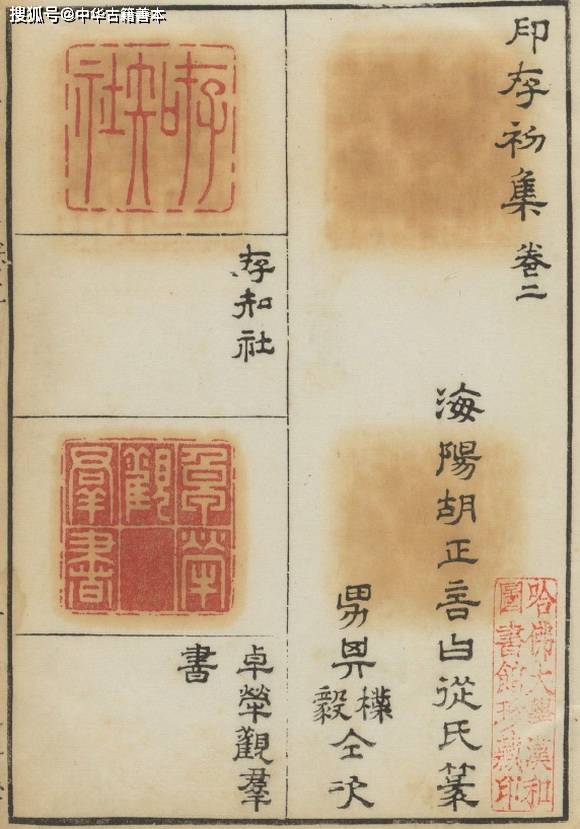 搜狐号@中华古籍善本
印存初集 卷二
海陽胡正言曰從氏篆
男其樸
毅
仝次
哈佛大學漢和
圖書館珍藏印
存知社
存知社
卓犖觀羣書
卓犖觀羣
書